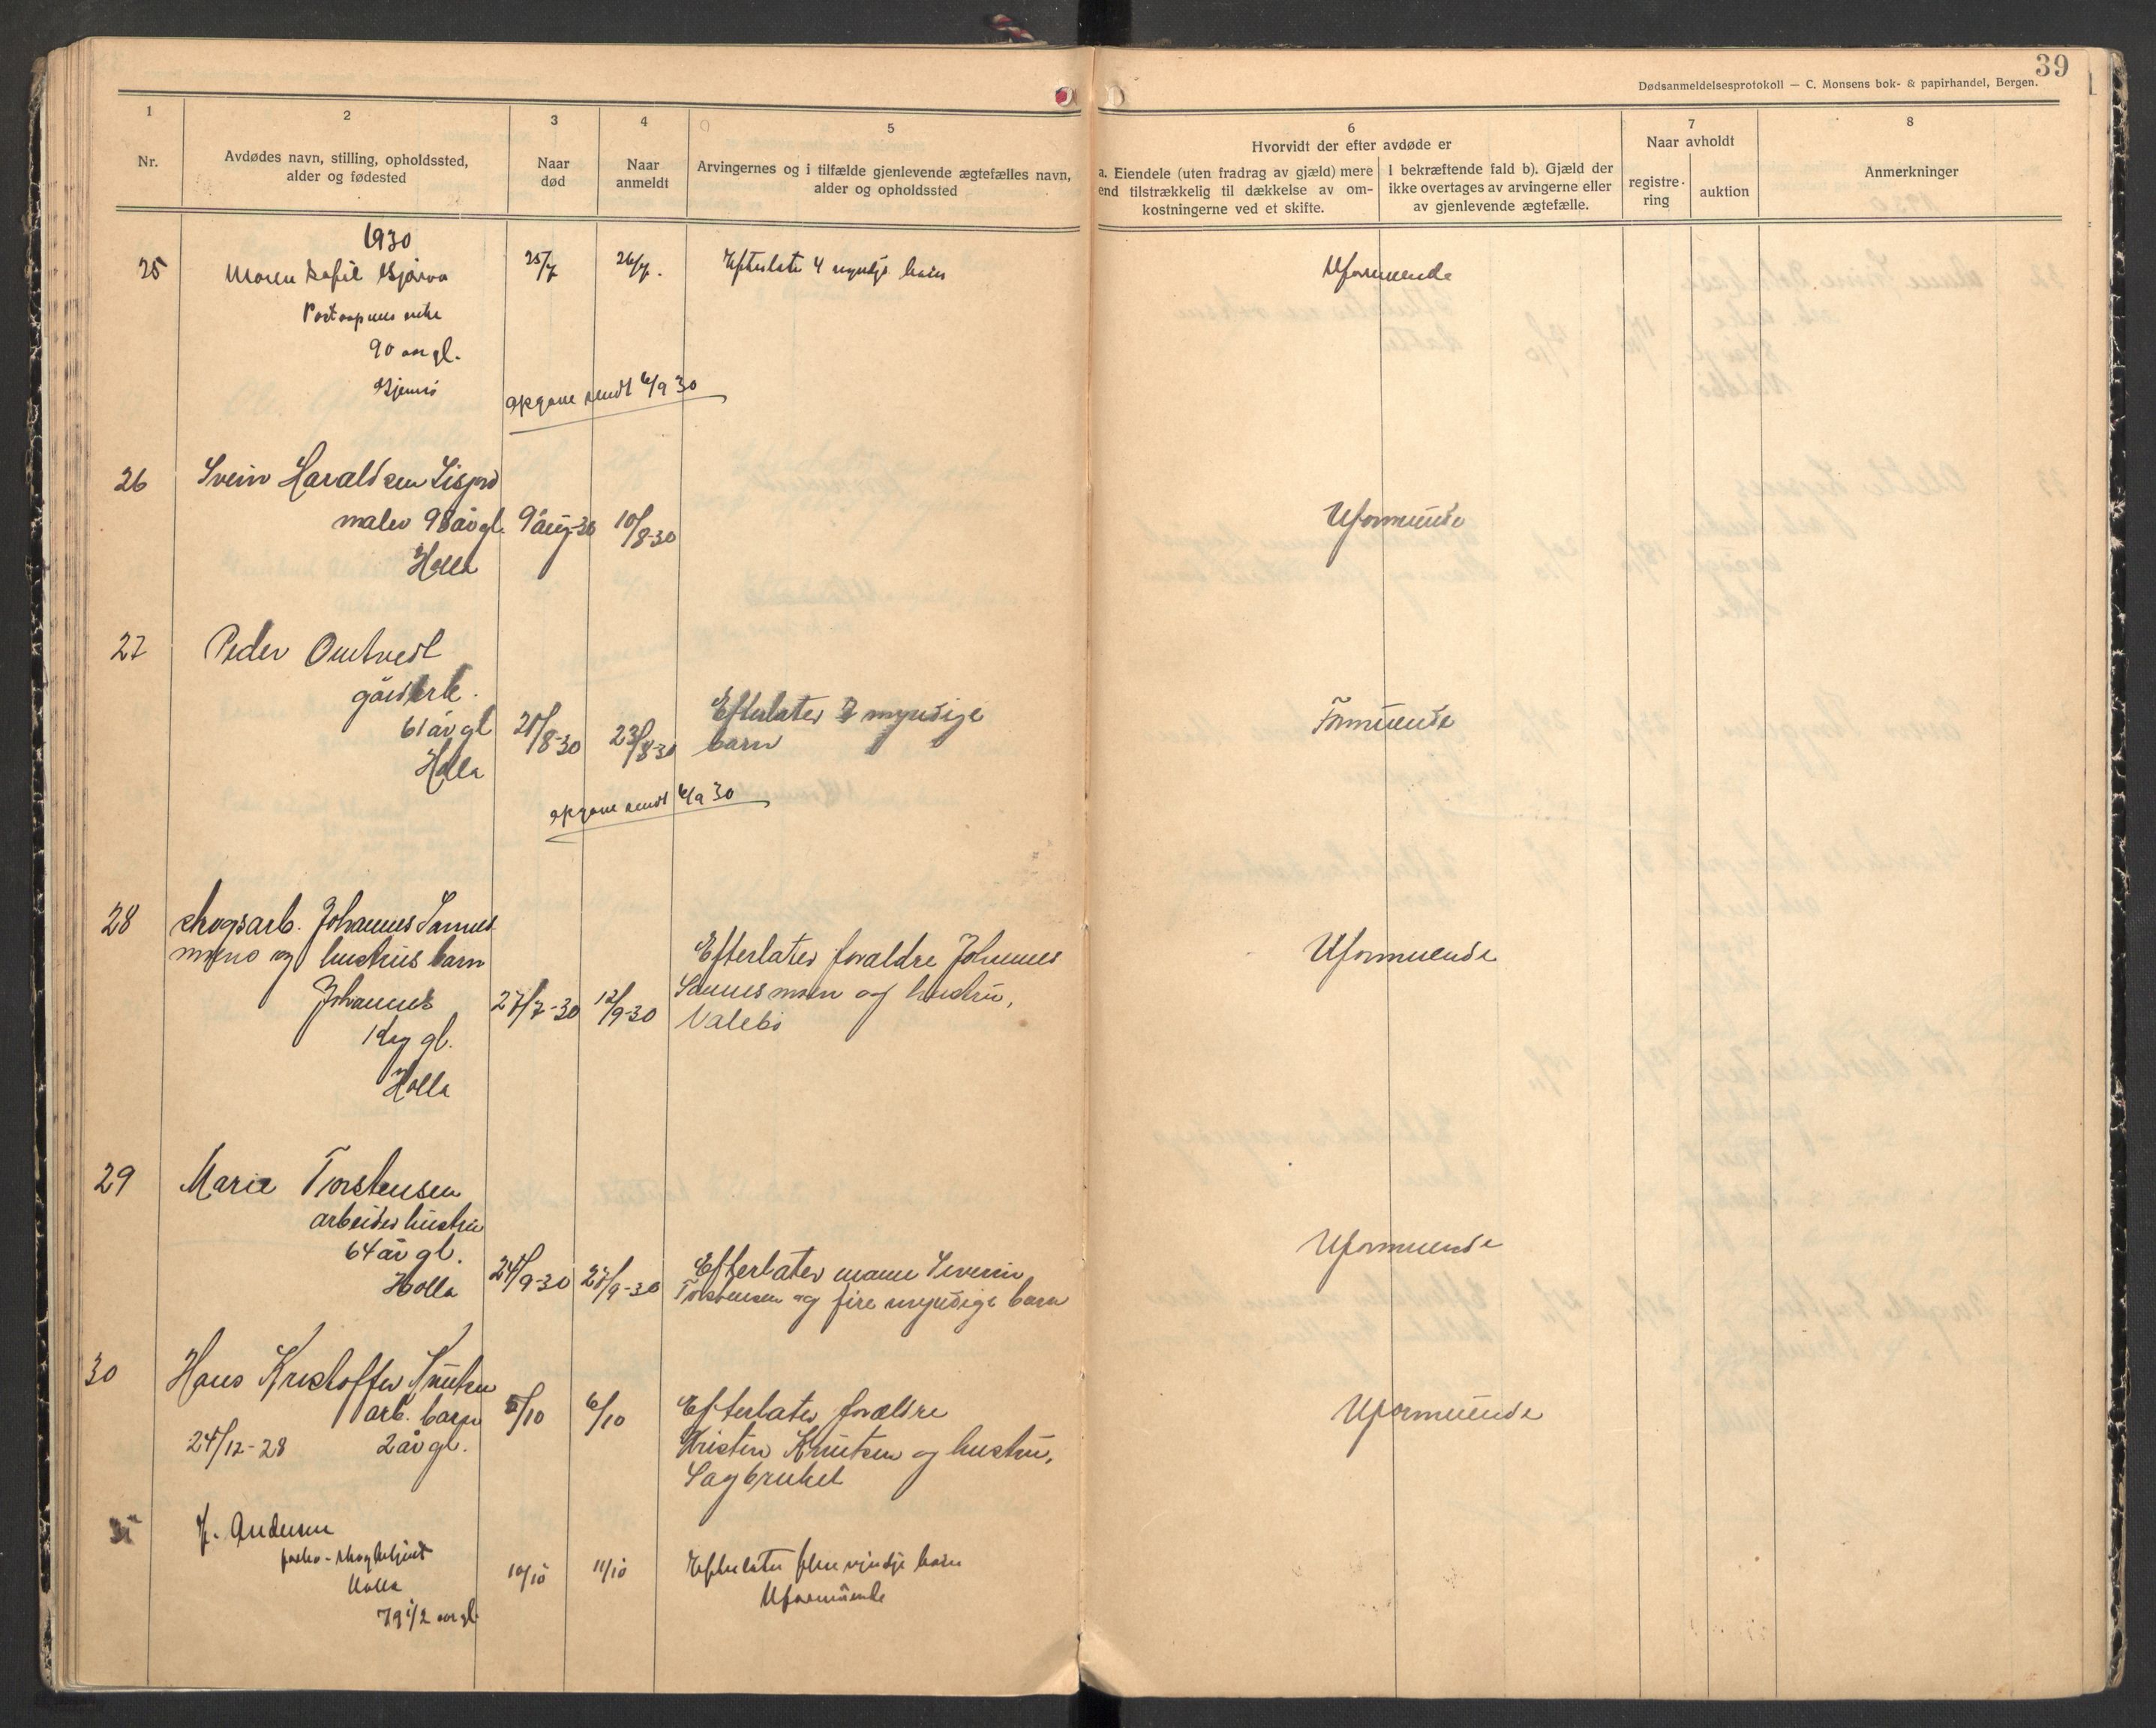 39
Dødsanmeldelsesprotokoll — C. Monsens bok- & papirhandel, Bergen.
1 2 3 4 5 6 7 8
Nr.
Avdødes navn, stilling, opholdssted,
alder og fødested
Naar
død
Naar
anmeldt
Arvingernes og i tilfælde gjenlevende ægtefælles navn,
alder og opholdssted
Hvorvidt der efter avdøde er
a. Eiendele (uten fradrag av gjæld) mere
end tilstrækkelig til dækkelse av om-
kostningerne ved et skifte.
I bekræftende fald b). Gjæld der
ikke overtages av arvingerne eller
av gjenlevende ægtefælle.
Naar avholdt
registre-
ring
auktion
Anmerkninger
1930
25 Maren 25/7 26/7. Efterlater 4 myndje barn Uformuende
90 aar gl.
opgave sendt 6/9 30
26 Svein Haraldsen
maler 98 år gl. 9 aug-30 10/8-30 Uformuende
Holla
27 Peder Omtvedt
gårdbrk.
61 år gl 21/8-30 23/8-30 Efterlater 2 myndige
barn Formuende
Holla
opgave sendt 6/9 30
28 skogsarb. Johannes Sannes
moen og hustrus barn
Johannes 27/7-30 12/9-30 Efterlater forældre Johannes
Sannesmoen og hustru,
Valebø Uformuende
1 dag gl.
Holla
29 Marie Torstensen
arbeider hustru
64 år gl.
Holla 24/9-30 27/9-30 Efterlater mann Severin
Torstensen og fire myndige barn Uformuende
30 Hans Kristoffer Knutsen
arb. barn 5/10 6/10 Efterlater forældre
24/12-28 2 år gl. Kristen Knutsen og hustru,
Sagbruket Uformuende
31 Andersen
Holla 10/10 11/10 Efterlater flere myndje barn
Uformuende
79 1/2 aar gl.